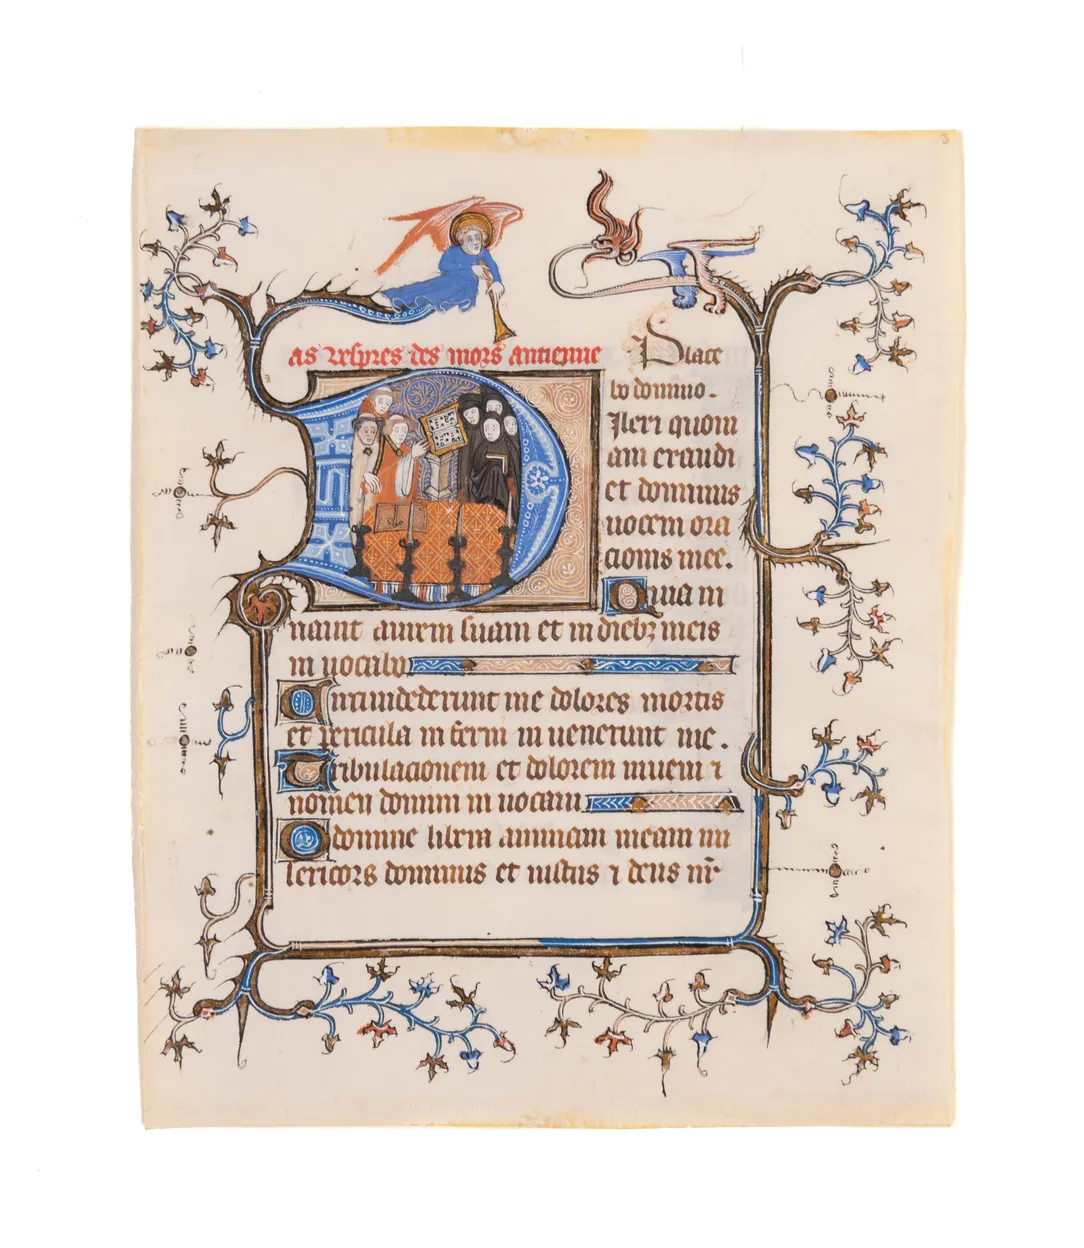 3
as vespres des mors antienne
Place
bo domino.
Dilexi quoni
am exaudi
et dominus
uocem ora
cionis mee.
Quia in
nauit aurem suam et in dieb; meis
in uocabo
Circumdederunt me dolores mortis
et pericula inferni in uenerunt me.
Tribulacionem et dolorem inueni ⁊
nomen domini in uocaui
O domine libera animam meam mi
sericors dominus et iustus ⁊ deus nr̄